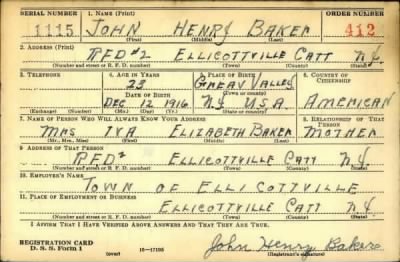 SERIAL NUMBER 1. NAME (Print) ORDER NUMBER
1115 JOHN HENRY BAKER 412
(First) (Middle) (Last)
2. ADDRESS (Print)
RFD#2 ELLICOTTVILLE CATT N.Y.
(Number and street or R. F. D. number) (Town) (County) (State)
3. TELEPHONE 4. AGE IN YEARS 5. PLACE OF BIRTH 6. COUNTRY OF CITIZENSHIP
23 GREAT VALLEY
DATE OF BIRTH (Town or county)
DEC 12 1916 N.Y. U.S.A. AMERICAN
(Exchange) (Number) (Mo.) (Day) (Yr.) (State or country)
7. NAME OF PERSON WHO WILL ALWAYS KNOW YOUR ADDRESS 8. RELATIONSHIP OF THAT PERSON
MRS IVA ELIZABETH BAKER MOTHER
(Mr., Mrs., Miss) (First) (Middle) (Last)
9. ADDRESS OF THAT PERSON
RFD2 ELLICOTTVILLE CATT N.Y.
(Number and street or R. F. D. number) (Town) (County) (State)
10. EMPLOYER'S NAME
TOWN OF ELLICOTTVILLE
11. PLACE OF EMPLOYMENT OR BUSINESS
ELLICOTTVILLE CATT N.Y.
(Number and street or R. F. D. number) (Town) (County) (State)
I AFFIRM THAT I HAVE VERIFIED ABOVE ANSWERS AND THAT THEY ARE TRUE.
REGISTRATION CARD
D. S. S. Form 1 (over) 16—17105 John Henry Baker
(Registrant's signature)